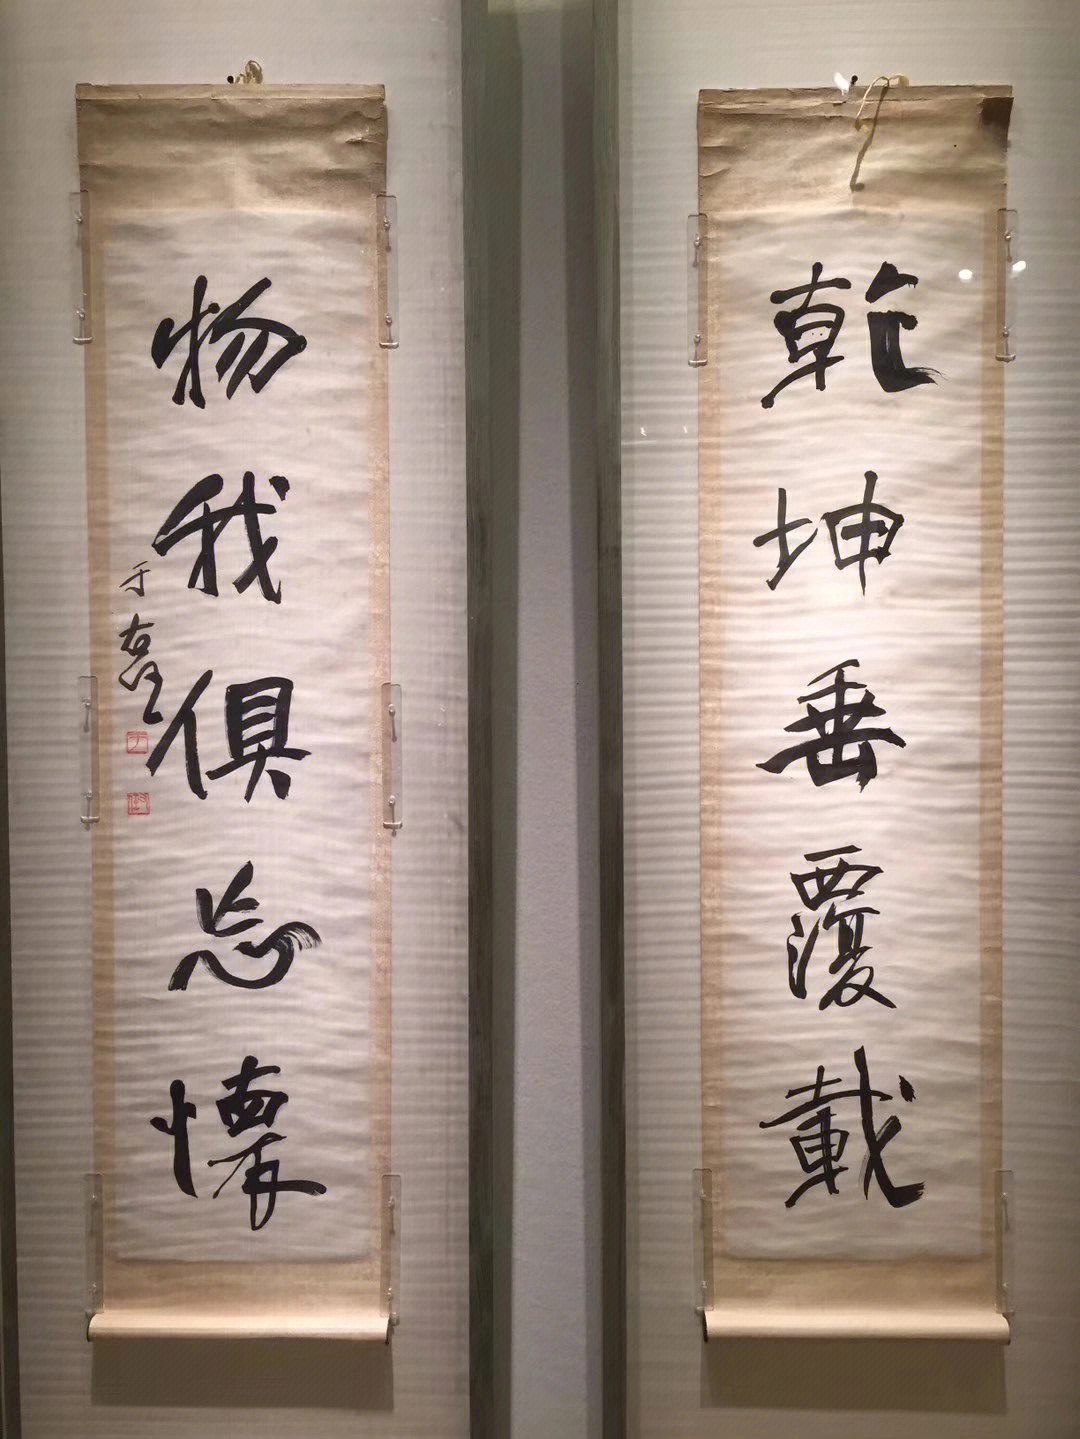 乾坤垂覆載
物我俱忘懷
于右任